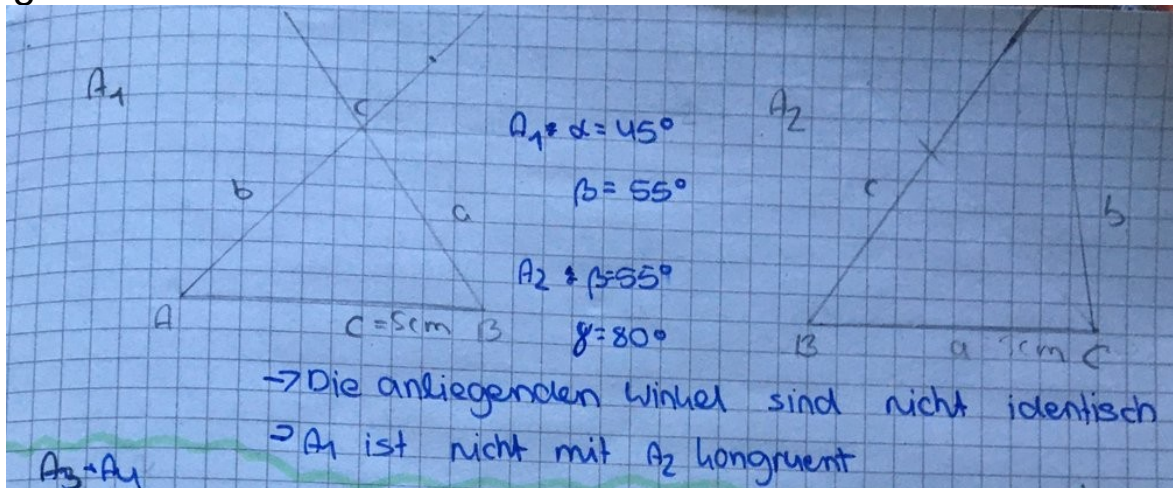 A1
C
b
a
A
c = 5cm
B
A1: α = 45°
β = 55°
A2: β = 55°
γ = 80°
A2
c
b
B
a
cm
C
→ Die anliegenden Winkel sind nicht identisch
⇒ A1 ist nicht mit A2 kongruent
A3 + A4